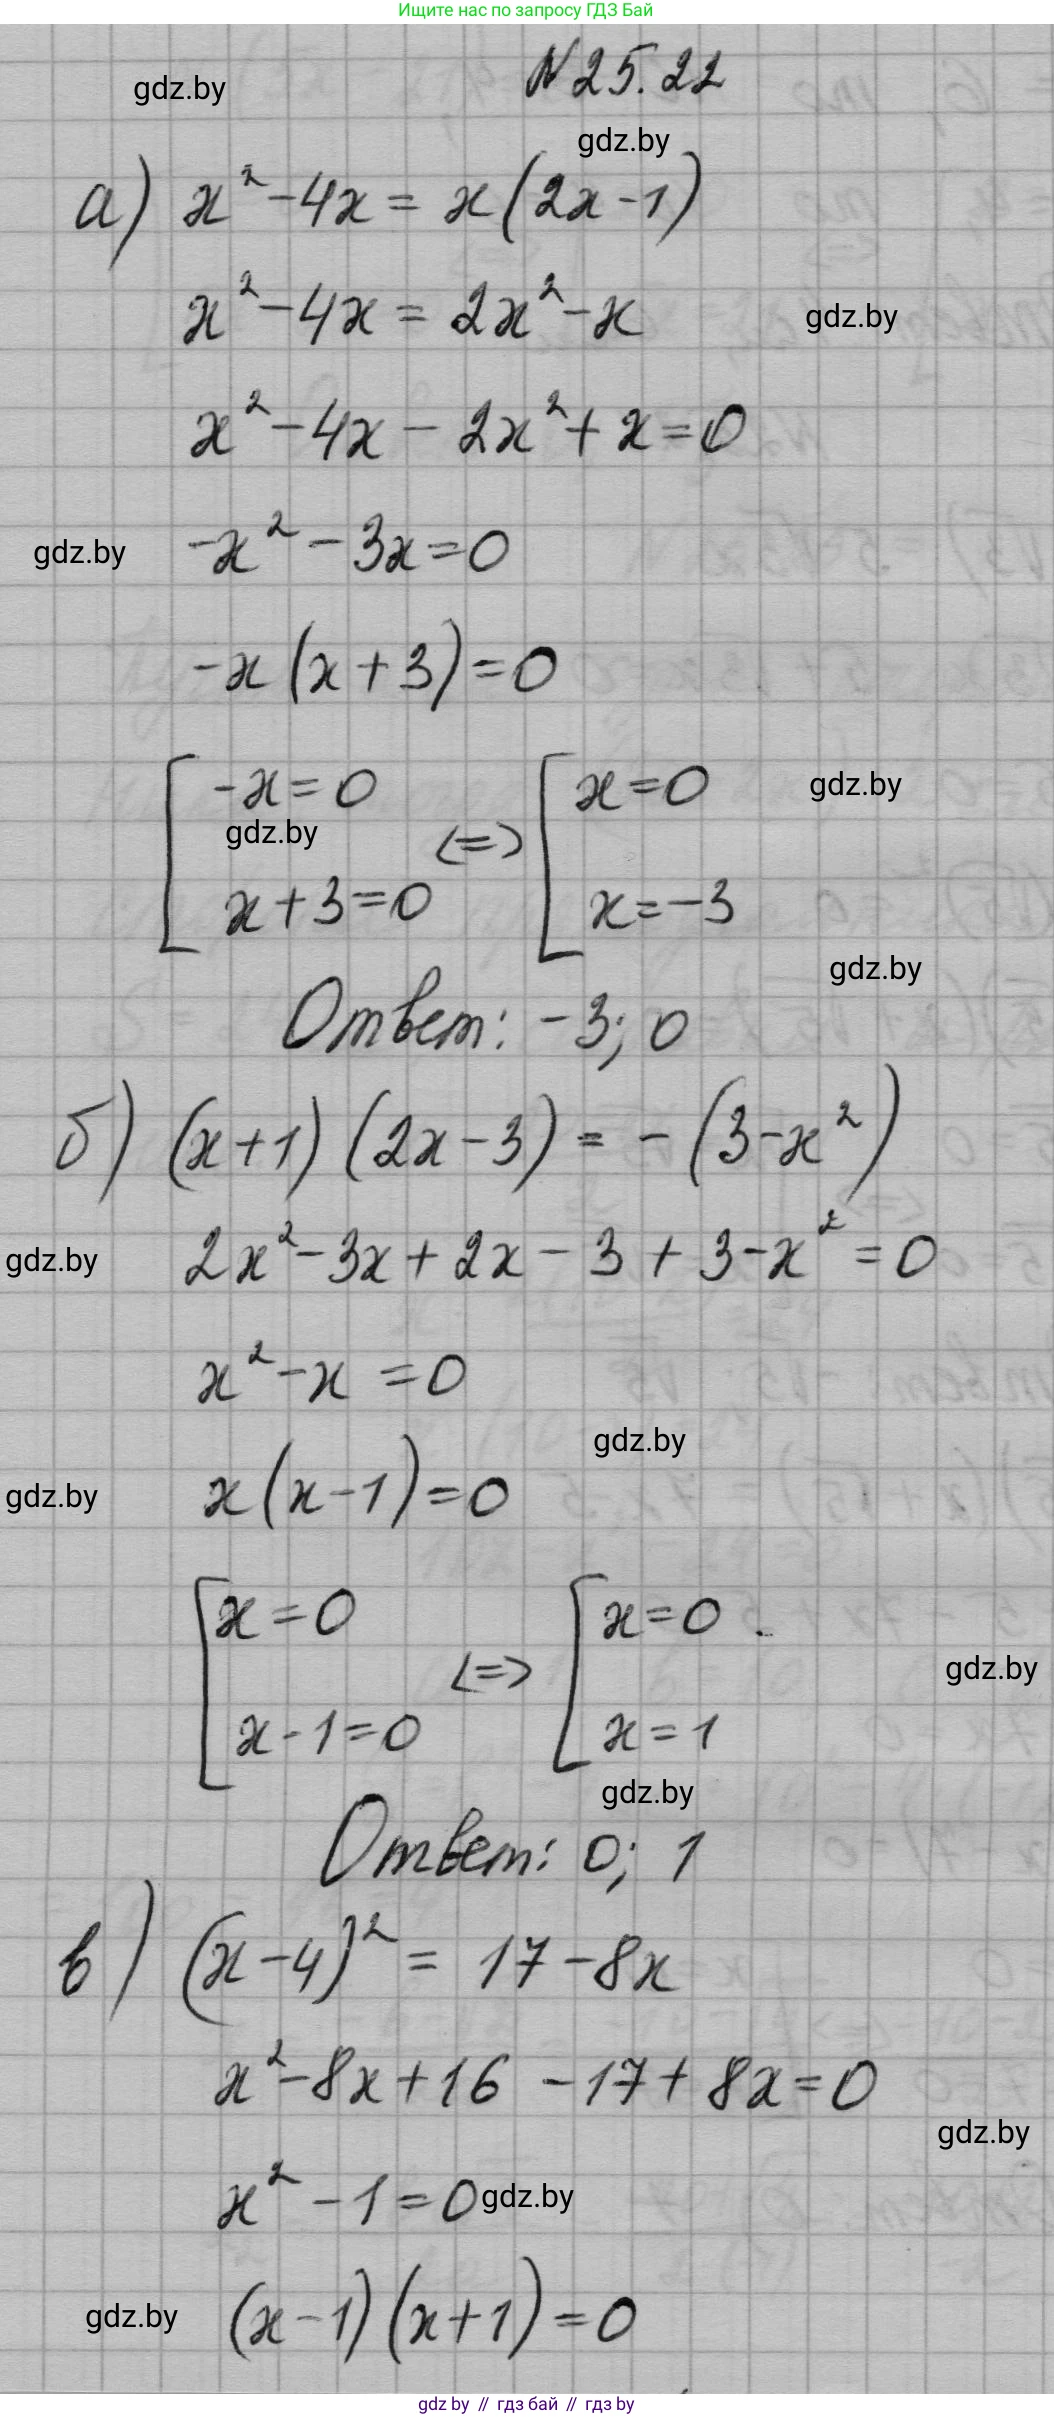 Ищите нас по запросу ГДЗ Бай
N 25.22
gdz.by
gdz.by
а) x² - 4x = x(2x - 1)
x² - 4x = 2x² - x
gdz.by
x² - 4x - 2x² + x = 0
gdz.by
-x² - 3x = 0
-x(x + 3) = 0
[ -x = 0 [ x = 0
gdz.by
gdz.by
<=>
x + 3 = 0 x = -3
gdz.by
Ответ: -3; 0
б) (x + 1)(2x - 3) = -(3 - x²)
gdz.by
2x² - 3x + 2x - 3 + 3 - x² = 0
x² - x = 0
gdz.by
gdz.by
x(x - 1) = 0
[ x = 0 [ x = 0 .
<=>
gdz.by
x - 1 = 0 x = 1
gdz.by
Ответ: 0; 1
в) (x - 4)² = 17 - 8x
x² - 8x + 16 - 17 + 8x = 0
gdz.by
x² - 1 = 0
gdz.by
gdz.by
(x - 1)(x + 1) = 0
gdz by // гдз бай // гдз by